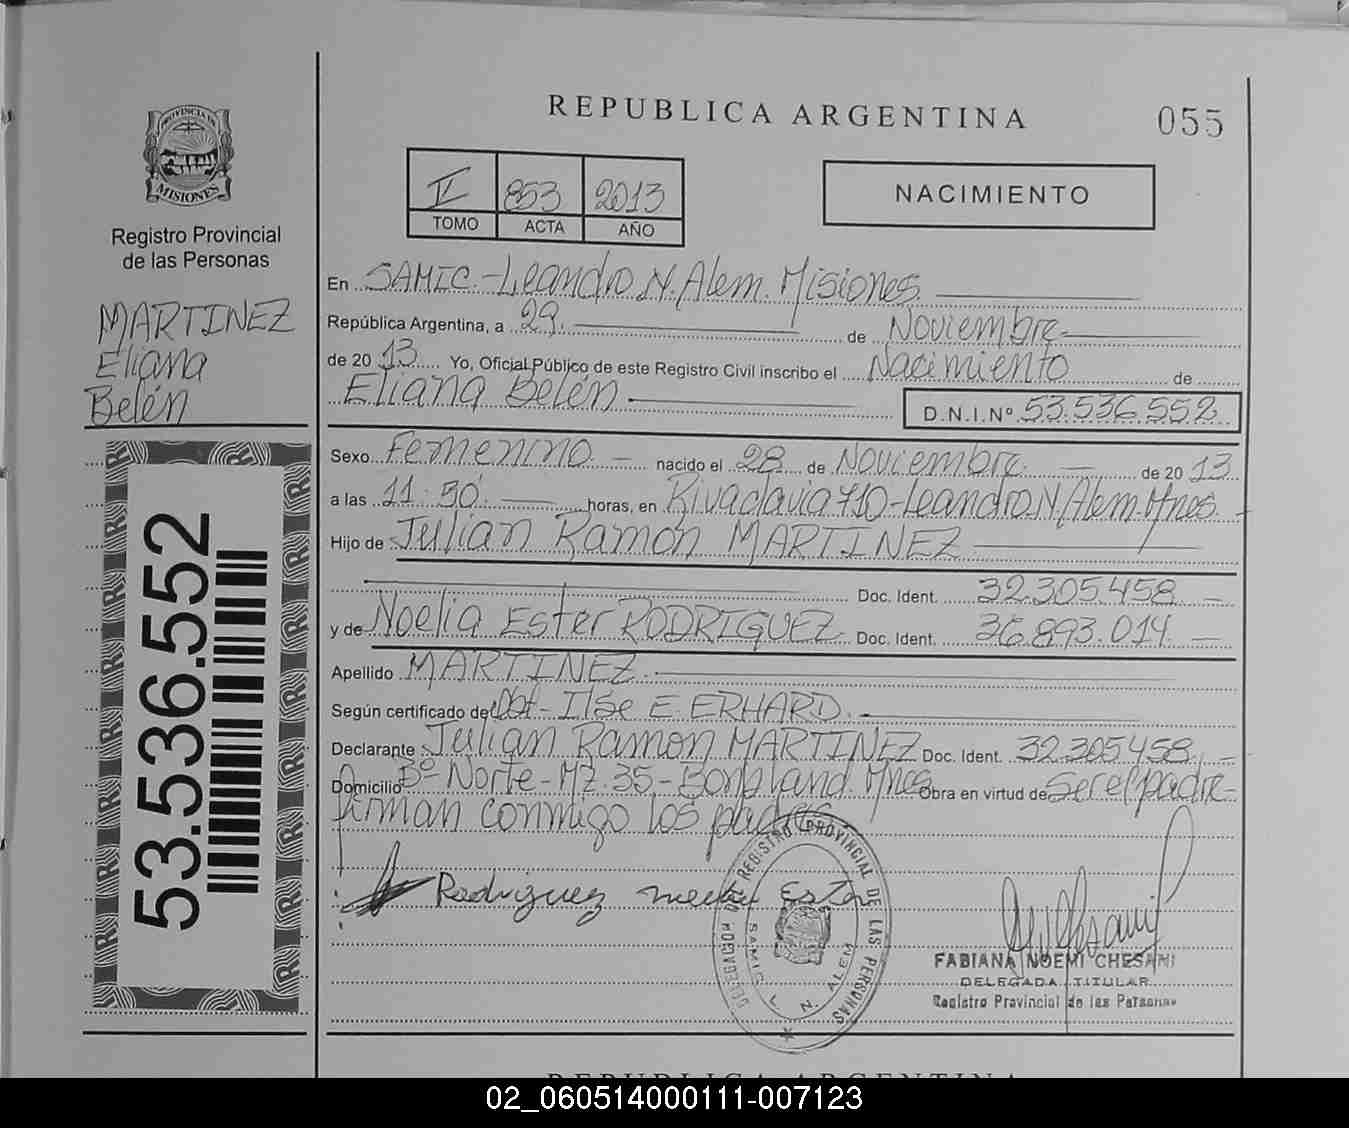 REPUBLICA ARGENTINA
055
PROVINCIA DE MISIONES
Registro Provincial
de las Personas
MARTINEZ
Eliana
Belén
53.536.552
853 2013
TOMO ACTA AÑO
NACIMIENTO
En SAMIC.-Leandro N. Alem. Misiones.
República Argentina, a 29. de Noviembre
de 2013 Yo, Oficial Público de este Registro Civil inscribo el Nacimiento de
Eliana Belén D.N.I.Nº 53.536.552
Sexo Femenino nacido el 28 de Noviembre de 2013
a las 11:50 horas, en Rivadavia 710-Leandro N. Alem. Mnes.
Hijo de Julian Ramon MARTINEZ
Doc. Ident. 32.305.458
y de Noelia Ester RODRIGUEZ Doc. Ident. 36.893.014
Apellido MARTINEZ
Según certificado de Obt- Ilse E. ERHARD.
Declarante Julian Ramon MARTINEZ Doc. Ident. 32.305.458
Domicilio Bº Norte-Mz. 35-Bonpland. Mnes Obra en virtud de Ser el padre-
firman conmigo los padres
Rodriguez Ester
DELEGACION DEL REGISTRO PROVINCIAL DE LAS PERSONAS
SAMIC L. N. ALEM
FABIANA NOEMI CHESANI
DELEGADA TITULAR
Registro Provincial de las Personas
REPUBLICA ARGENTINA
02_060514000111-007123